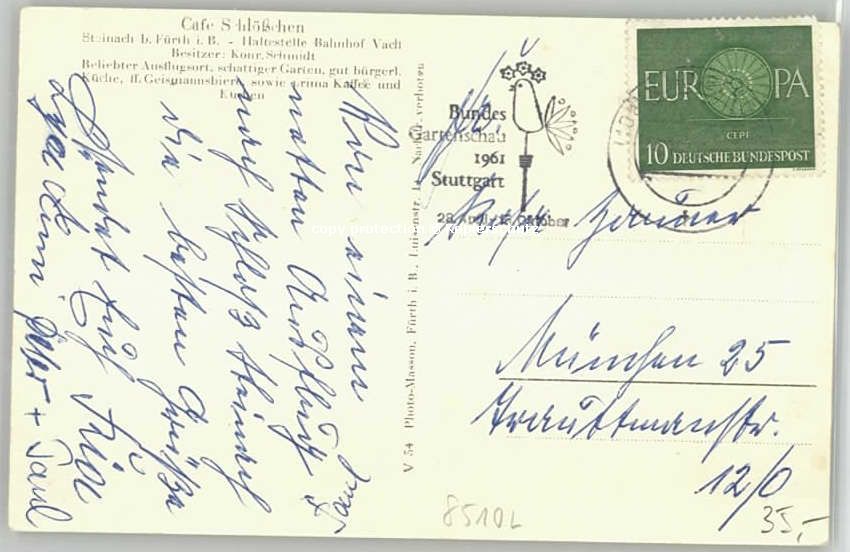 Cafe Schlößchen
Steinach b. Fürth i. B. - Haltestelle Bahnhof Vach
Besitzer: Konr. Schmidt
Beliebter Ausflugsort, schattiger Garten, gut bürgerl.
Küche, ff. Geismannsbiere, sowie prima Kaffee und
Kuchen
Von einem
netten Ausflug
nach Schloß Steinach
die besten Grüße
sendet Euch
Peter + Paul
V 54 Photo-Masson, Fürth i. B., Luisenstr. Nachdr. verboten
Bundes
Gartenschau
1961
Stuttgart
28. April - Oktober
EUROPA
CEPT
10 DEUTSCHE BUNDESPOST
München 25
Trauttmannstr.
12/0
8510L
35,-
copy protection @ Kopierschutz